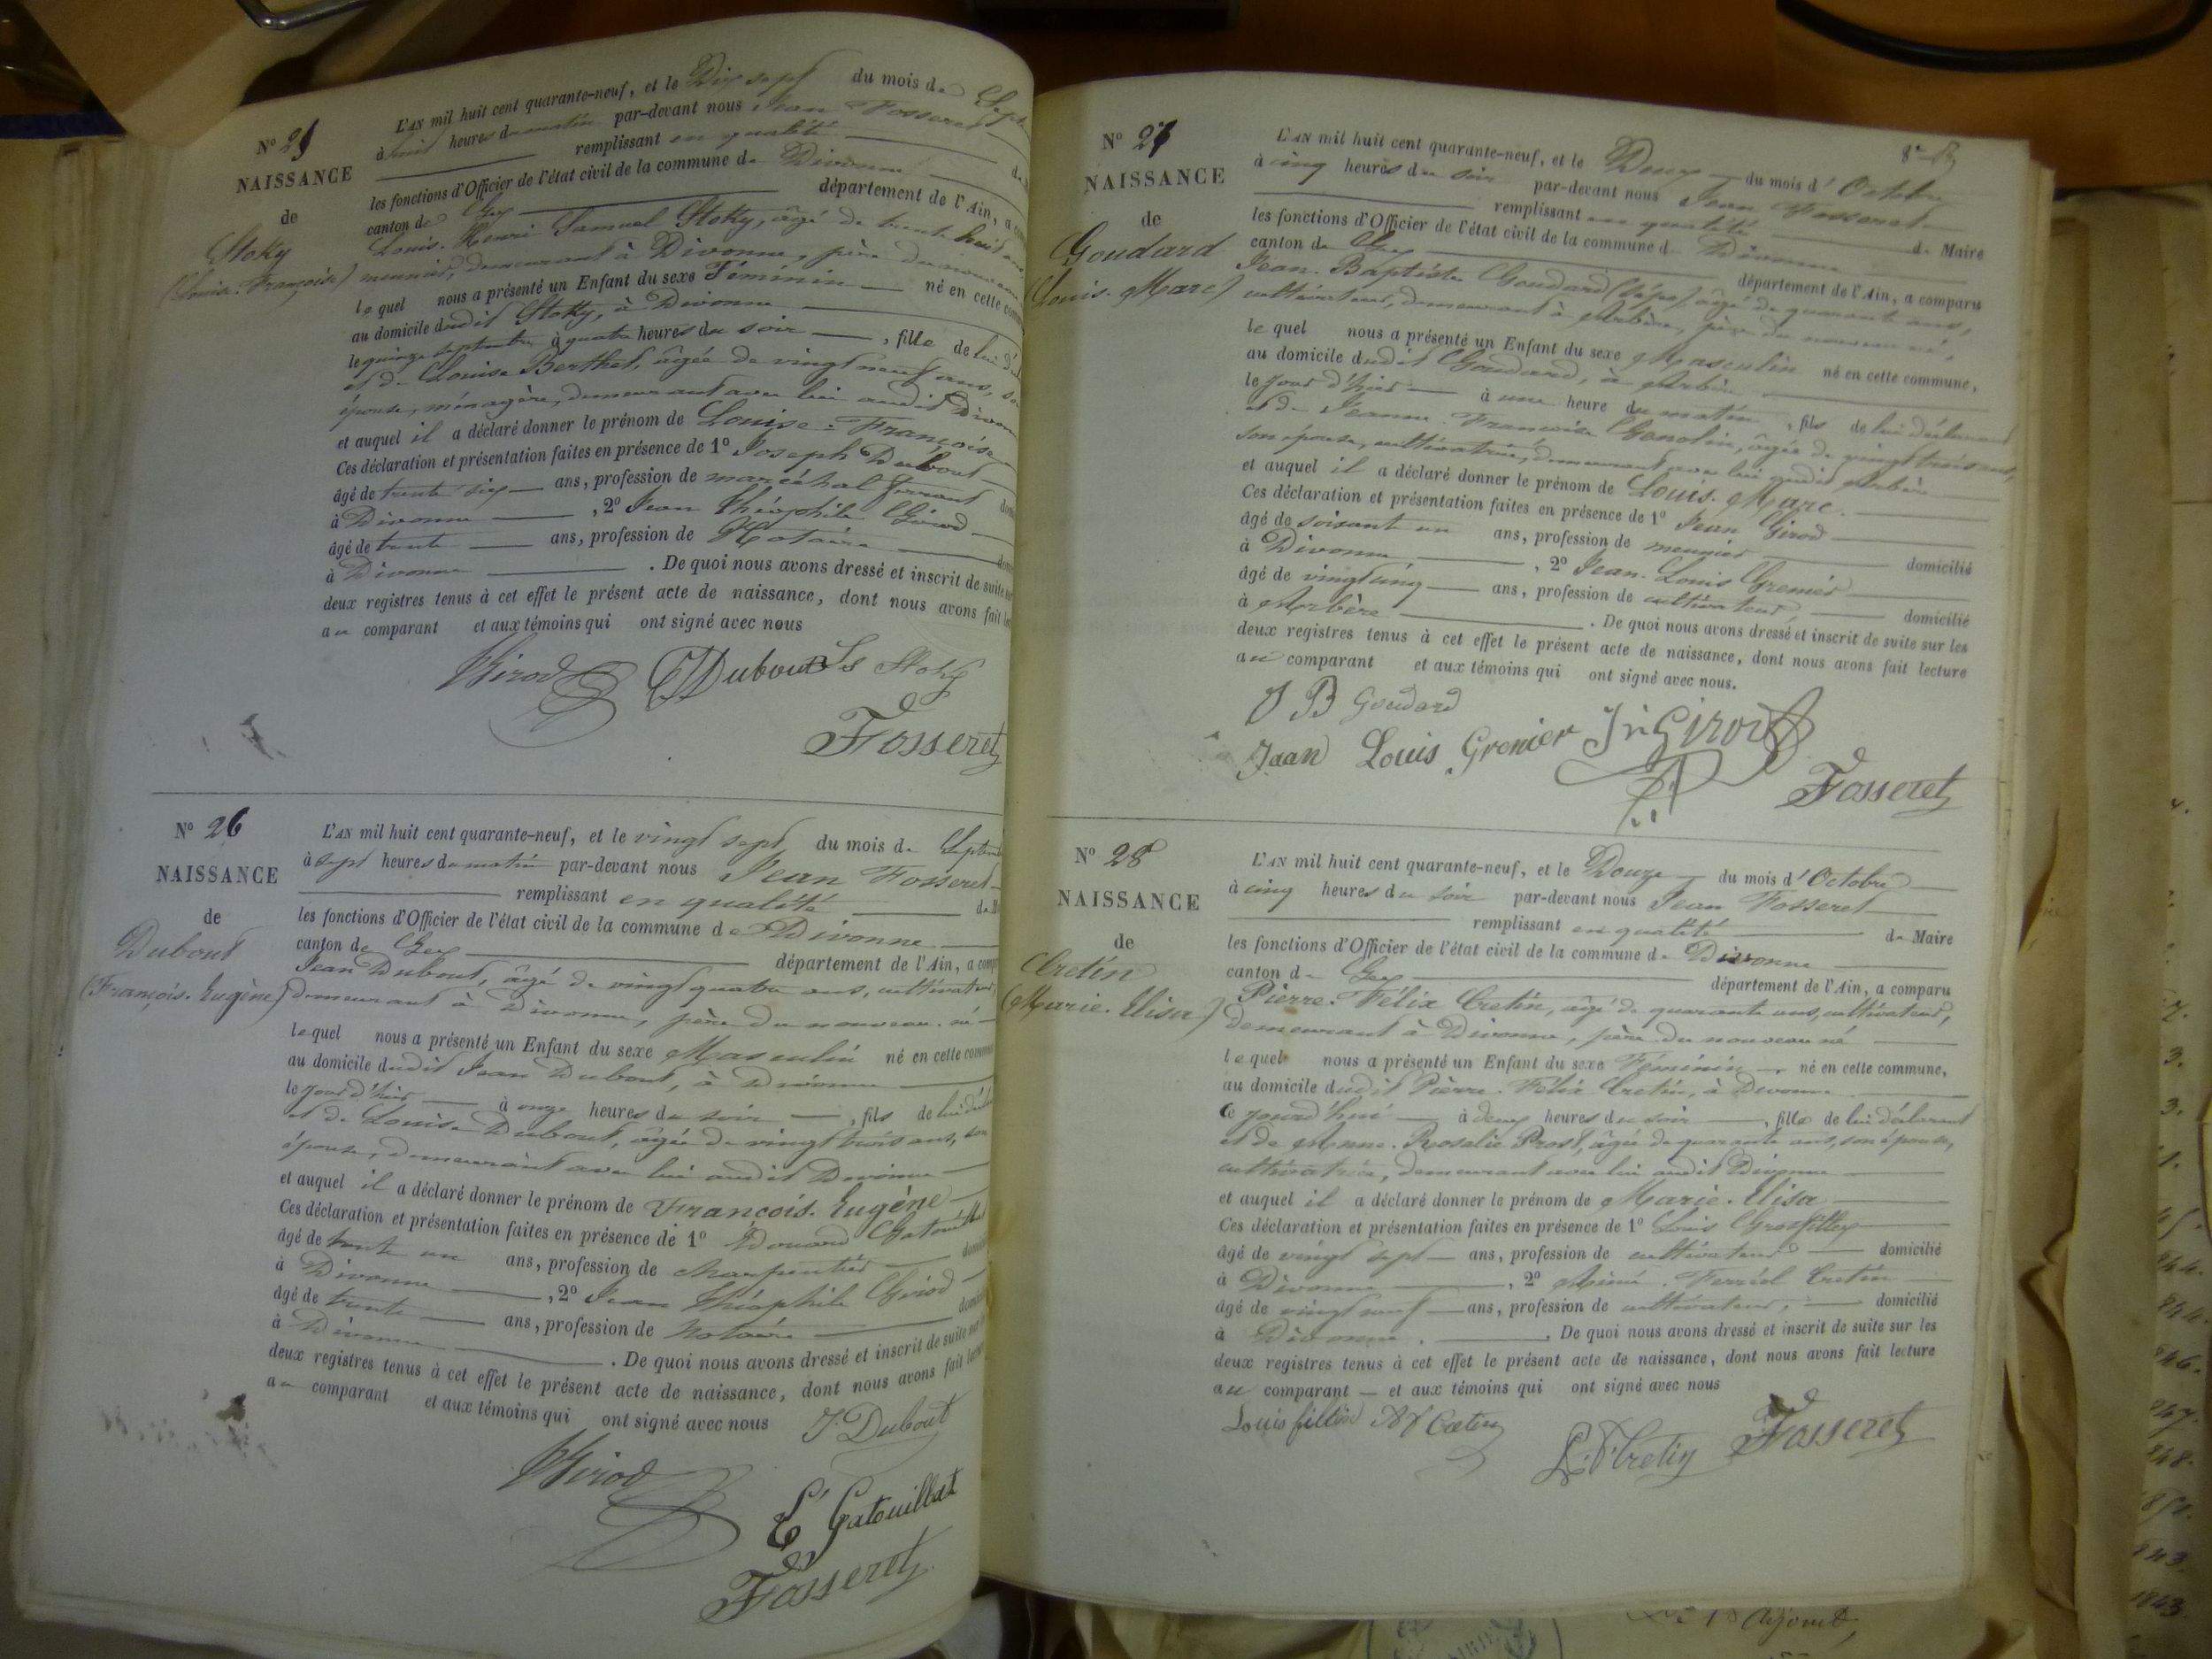 N° 25
NAISSANCE
de
Stoky
(Louise-Françoise)
L'AN mil huit cent quarante-neuf, et le Dix sept du mois de
à huit heures du matin par-devant nous Jean Fosseret
remplissant en qualité
les fonctions d'Officier de l'état civil de la commune de Divonne
canton de Gex département de l'Ain, a
Louis-Henri Samuel Stoky, âgé de trente huit ans
meunier, demeurant à Divonne, père du nouveau
lequel nous a présenté un Enfant du sexe Féminin né en cette
au domicile dudit Stoky, à Divonne
le quinze septembre à quatre heures du soir, fille de lui
et de Louise Berthet, âgée de vingt neuf ans, son
épouse, ménagère, demeurant avec lui audit Divonne
et auquel il a déclaré donner le prénom de Louise-Françoise
Ces déclaration et présentation faites en présence de 1° Joseph Dubout
âgé de trente six ans, profession de maréchal ferrant
à Divonne, 2° Jean Théophile Girod
âgé de trente ans, profession de Notaire
à Divonne. De quoi nous avons dressé et inscrit de suite
deux registres tenus à cet effet le présent acte de naissance, dont nous avons fait
au comparant et aux témoins qui ont signé avec nous
Girod Dubout Ls Stoky
Fosseret
N° 26
NAISSANCE
de
Dubout
(François-Eugène)
L'AN mil huit cent quarante-neuf, et le vingt sept du mois de
à sept heures du matin par-devant nous Jean Fosseret
remplissant en qualité
les fonctions d'Officier de l'état civil de la commune de Divonne
canton de Gex département de l'Ain, a
Jean Dubout, âgé de vingt quatre ans, cultivateur,
demeurant à Divonne, père du nouveau-né
lequel nous a présenté un Enfant du sexe Masculin né en cette
au domicile dudit Jean Dubout, à Divonne
le jour d'hier à onze heures du soir, fils de lui
et de Louise Dubout, âgée de vingt trois ans, son
épouse, demeurant avec lui audit Divonne
et auquel il a déclaré donner le prénom de François-Eugène
Ces déclaration et présentation faites en présence de 1° Édouard Gatouillat
âgé de trente un ans, profession de charpentier
à Divonne, 2° Jean Théophile Girod
âgé de trente ans, profession de Notaire
à Divonne. De quoi nous avons dressé et inscrit de suite
deux registres tenus à cet effet le présent acte de naissance, dont nous avons fait
au comparant et aux témoins qui ont signé avec nous J. Dubout
Girod
E Gatouillat
Fosseret
N° 27
NAISSANCE
de
Goudard
(Louis-Marc)
L'AN mil huit cent quarante-neuf, et le Douze du mois d'Octobre
à cinq heures du soir par-devant nous Jean Fosseret
remplissant en qualité de Maire
les fonctions d'Officier de l'état civil de la commune de Divonne
canton de Gex département de l'Ain, a comparu
Jean-Baptiste Goudard âgé de quarante ans,
cultivateur, demeurant à Arbère, père du nouveau né,
lequel nous a présenté un Enfant du sexe Masculin né en cette commune,
au domicile dudit Goudard, à Arbère
le jour d'hier à une heure du matin, fils de lui déclarant
et de Jeanne Françoise âgée de vingt trois ans,
son épouse, cultivatrice, demeurant avec lui audit Arbère
et auquel il a déclaré donner le prénom de Louis-Marc.
Ces déclaration et présentation faites en présence de 1° Jean Girod
âgé de soixante un ans, profession de meunier domicilié
à Divonne, 2° Jean-Louis Grenier
âgé de vingt cinq ans, profession de cultivateur, domicilié
à Arbère. De quoi nous avons dressé et inscrit de suite sur les
deux registres tenus à cet effet le présent acte de naissance, dont nous avons fait lecture
au comparant et aux témoins qui ont signé avec nous.
J B Goudard
Jean Louis Grenier Jn Girod
Fosseret
N° 28
NAISSANCE
de
Cretin
(Marie-Elisa)
L'AN mil huit cent quarante-neuf, et le Douze du mois d'Octobre
à cinq heures du soir par-devant nous Jean Fosseret
remplissant en qualité de Maire
les fonctions d'Officier de l'état civil de la commune de Divonne
canton de Gex département de l'Ain, a comparu
Pierre-Félix Cretin, âgé de quarante ans, cultivateur,
demeurant à Divonne, père du nouveau né
lequel nous a présenté un Enfant du sexe Féminin né en cette commune,
au domicile dudit Pierre-Félix Cretin, à Divonne
ce jourd'hui à deux heures du soir, fille de lui déclarant
et de Anne-Rosalie Prost, âgée de quarante ans, son épouse,
cultivatrice, demeurant avec lui audit Divonne
et auquel il a déclaré donner le prénom de Marie-Elisa
Ces déclaration et présentation faites en présence de 1° Louis
âgé de vingt sept ans, profession de cultivateur domicilié
à Divonne, 2° Aimé Ferréol Cretin
âgé de vingt neuf ans, profession de cultivateur, domicilié
à Divonne. De quoi nous avons dressé et inscrit de suite sur les
deux registres tenus à cet effet le présent acte de naissance, dont nous avons fait lecture
au comparant et aux témoins qui ont signé avec nous
Louis Cretin
Cretin Fosseret